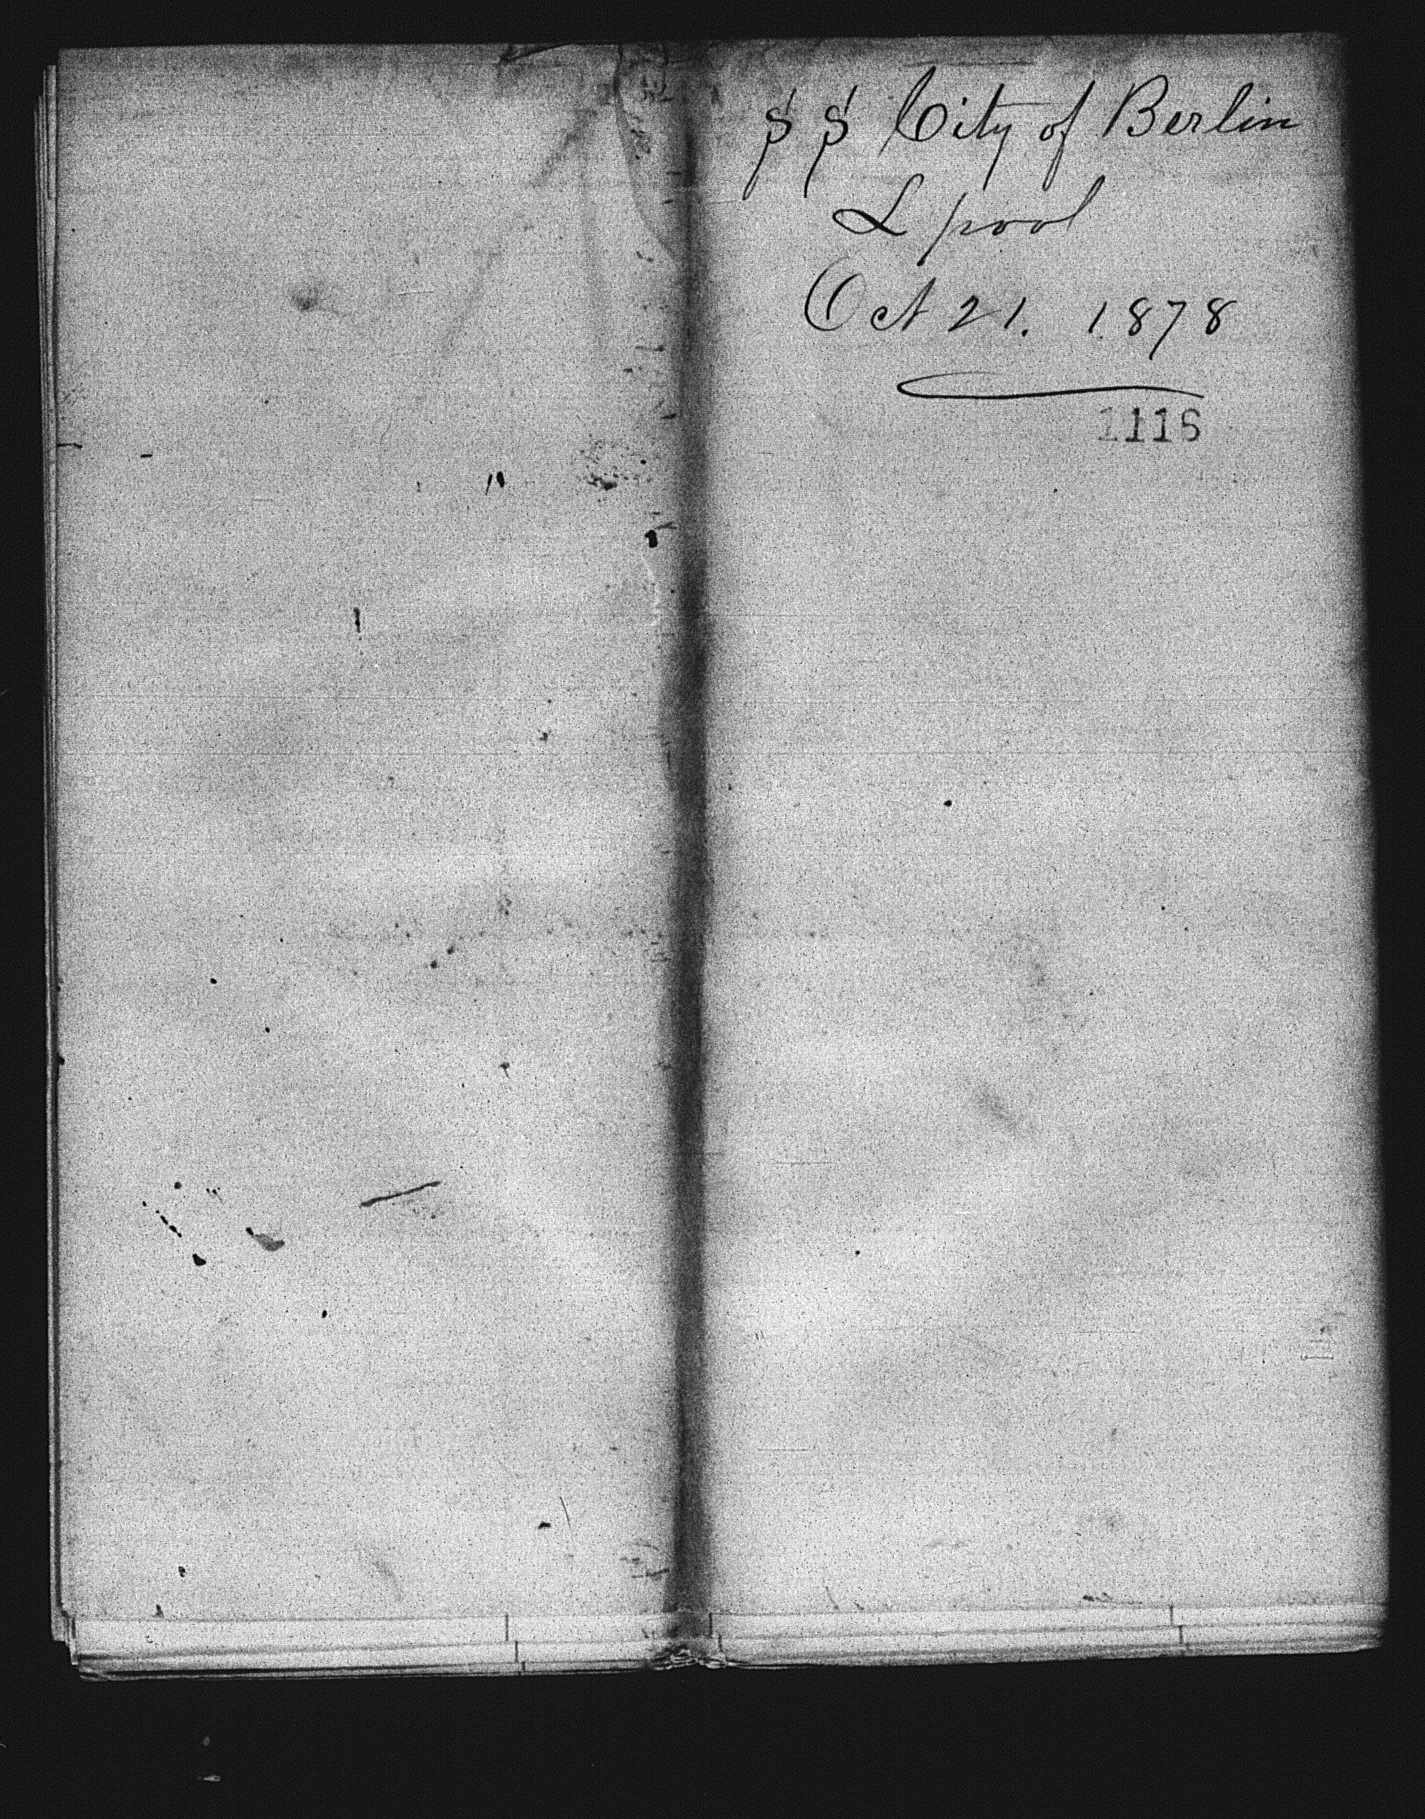 SS City of Berlin
L pool
Oct 21. 1878
1116